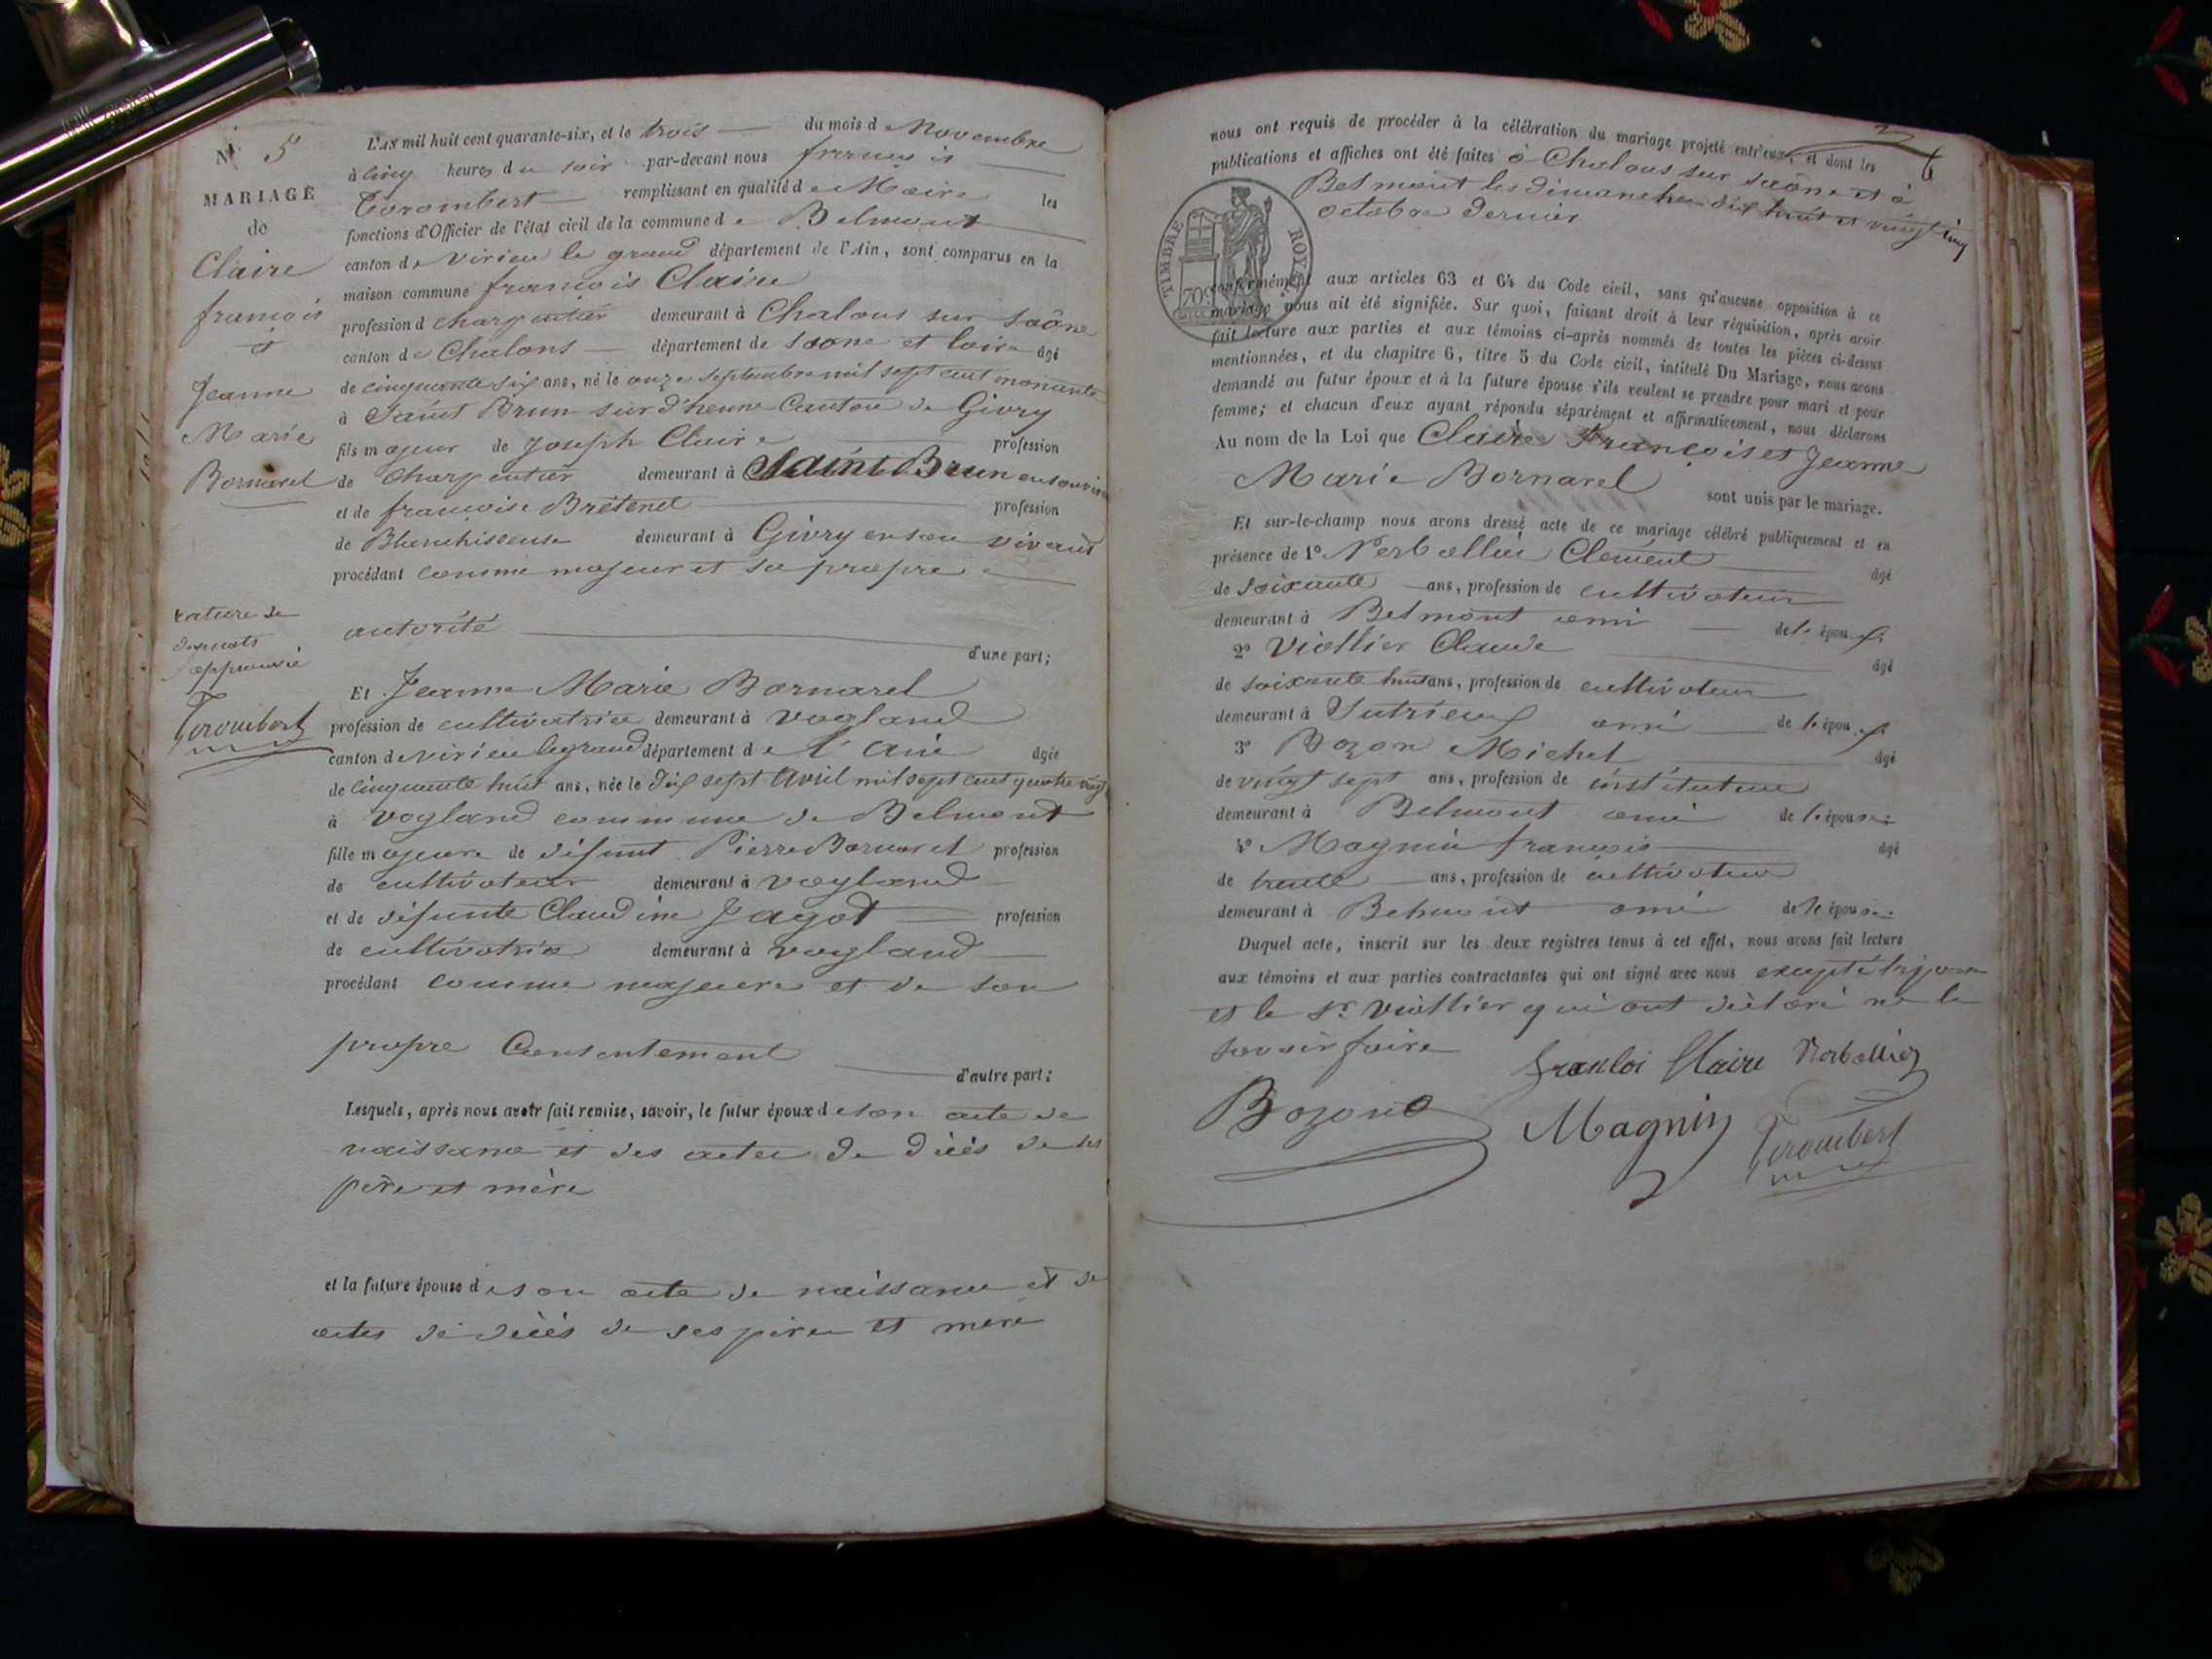 N° 5
MARIAGE
de
Claire
francois
et
Jeanne
Marie
Bornarel
rature de
deux mots
approuvée
Torombert
L'AN mil huit cent quarante-six, et le trois du mois de Novembre
à cinq heures du soir par-devant nous francois
Torombert remplissant en qualité de Maire les
fonctions d'Officier de l'état civil de la commune de Belmont
canton de virieu le grand département de l'Ain, sont comparus en la
maison commune francois Claire
profession d charpentier demeurant à Chalons sur saône
canton de Chalons département de Saone et loire âgé
de cinquante six ans, né le onze septembre mil sept cent nonante
à Saint Brun sur d'heune Canton de Givry
fils majeur de Joseph Claire profession
de Charpentier demeurant à Saint Brun en son viv
et de francoise Brétenel profession
de Blanchisseuse demeurant à Givry en son vivant
procédant comme majeur et sa propre
autorité
d'une part;
Et Jeanne Marie Bornarel
profession de cultivatrice demeurant à vogland
canton de virieu le grand département de l'Ain âgée
de cinquante huit ans, née le dix sept avril mil sept cent quatre vingt
à vogland commune de Belmont
fille majeure de défunt Pierre Bornarel profession
de cultivateur demeurant à vogland
et de défunte Claudine Jagot profession
de cultivatrice demeurant à vogland
procédant comme majeure et de son
propre Consentement
d'autre part;
Lesquels, après nous avoir fait remise, savoir, le futur époux de son acte de
naissance et des actes de décés de ses
père et mère
et la future épouse de son acte de naissance et de
actes de décés de ses pères et mère
6
nous ont requis de procéder à la célébration du mariage projeté entr'eux, et dont les
publications et affiches ont été faites à Chalons sur saône et à
Belmont les dimanches dix huit et vingt cinq
octobre dernier
TIMBRE ROYAL
70c
conformément aux articles 63 et 64 du Code civil, sans qu'aucune opposition à ce
mariage nous ait été signifiée. Sur quoi, faisant droit à leur réquisition, après avoir
fait lecture aux parties et aux témoins ci-après nommés de toutes les pièces ci-dessus
mentionnées, et du chapitre 6, titre 5 du Code civil, intitulé Du Mariage, nous avons
demandé au futur époux et à la future épouse s'ils veulent se prendre pour mari et pour
femme; et chacun d'eux ayant répondu séparément et affirmativement, nous déclarons
Au nom de la Loi que Claire Francois et Jeanne
Marie Bornarel sont unis par le mariage.
Et sur-le-champ nous avons dressé acte de ce mariage célébré publiquement et en
présence de 1° Nerbollier Clement âgé
de soixante ans, profession de cultivateur
demeurant à Belmont ami de l'époux;
2° Viollier Claude âgé
de soixante huit ans, profession de cultivateur
demeurant à Sutrieux ami de l'époux;
3° Bozon Michel âgé
de vingt sept ans, profession de instituteur
demeurant à Belmont ami de l'épouse;
4° Magnin francois âgé
de trente ans, profession de cultivateur
demeurant à Belmont ami de l'épouse;
Duquel acte, inscrit sur les deux registres tenus à cet effet, nous avons fait lecture
aux témoins et aux parties contractantes qui ont signé avec nous excepté
et le Sr Viollier qui ont déclaré ne le
savoir faire
francloi Claire Nerbollier
Bozon Magnin Torombert